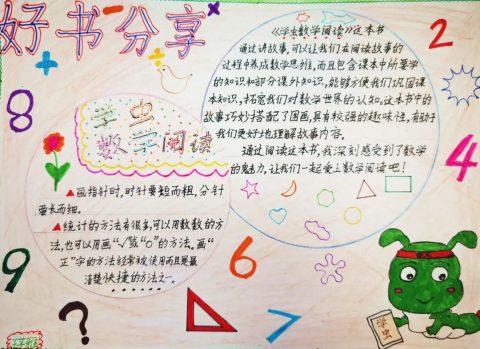 好书分享
《学虫数学阅读》这本书
通过讲故事,可以让我们在阅读故事的
过程中养成数学思维,而且包含课本中所要学
的知识和部分课外知识,能够方便我们巩固课
本知识,拓宽我们对数学世界的认知。这本书中的
故事巧妙搭配了图画,具有较强的趣味性,有助于
我们更好地理解故事内容。
通过阅读这本书,我深刻感受到了数学
的魅力,让我们一起爱上数学阅读吧!
学虫
数学阅读
▲画指针时,时针要短而粗,分针
要长而细。
▲统计的方法有很多,可以用数数的方
法,也可以用画“√”或“○”的方法。画“
正”字的方法经常被使用而且是最
清楚快捷的方法之一。
+
-
×
÷
2
8
4
9
6
7
?
学虫